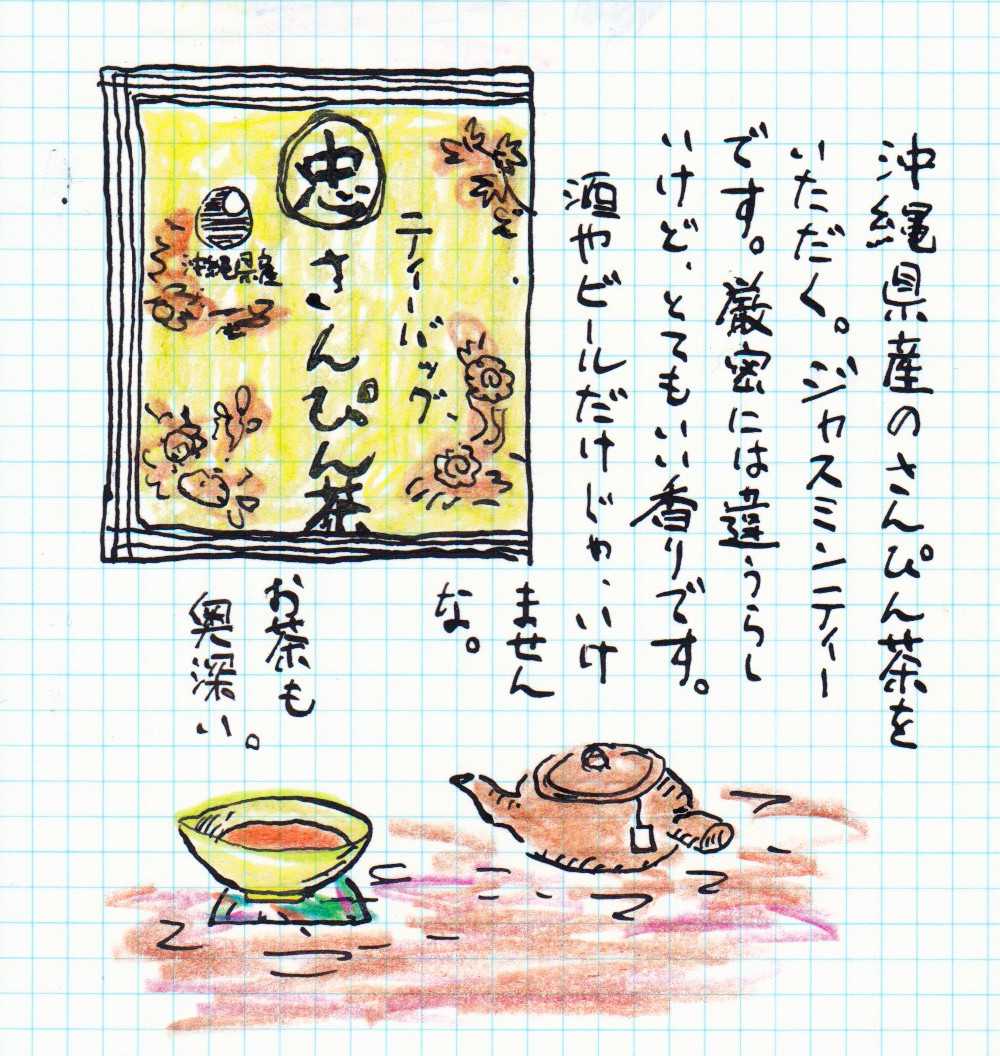 沖縄県産のさんぴん茶を
いただく。ジャスミンティー
です。厳密には違うらし
いけど、とてもいい香りです。
酒やビールだけじゃ、いけ
ません
な。
お茶も
奥深い。
ティーバッグ
忠
さんぴん茶
沖縄県産